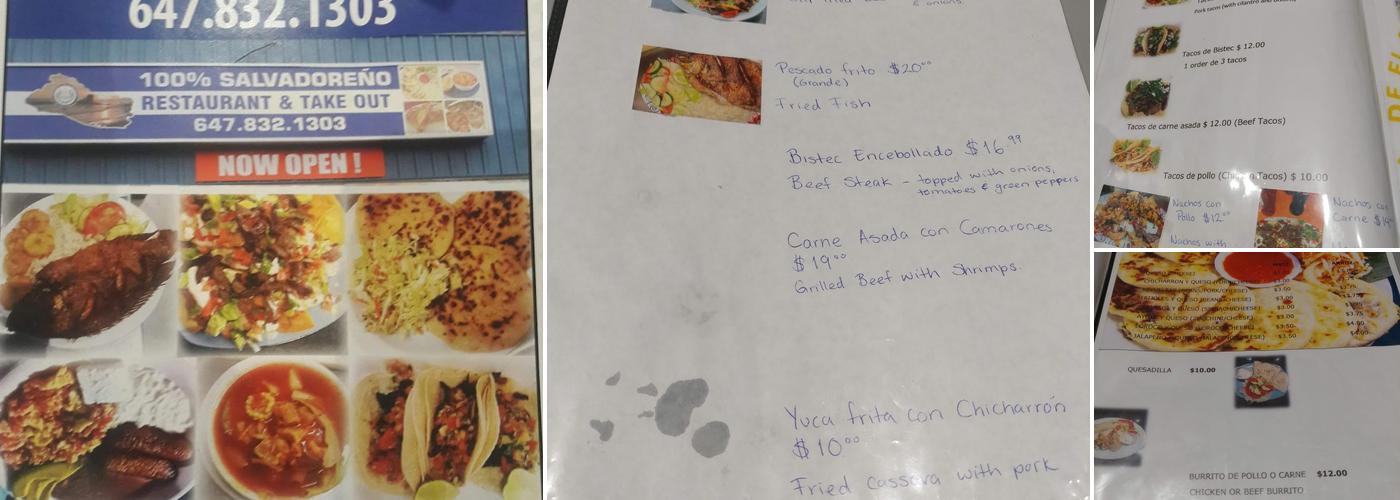 647.832.1303
100% SALVADOREÑO
RESTAURANT & TAKE OUT
647.832.1303
NOW OPEN !
& onions.
Pescado frito $20⁰⁰
(Grande)
Fried Fish
Bistec Encebollado $16.⁹⁹
Beef Steak - topped with onions,
tomatoes & green peppers
Carne Asada con Camarones
$19⁰⁰
Grilled Beef with Shrimps.
Yuca frita con Chicharrón
$10⁰⁰
Fried Cassava with pork
Pork tacos (with cilantro and
Tacos de Bistec $ 12.00
1 order de 3 tacos
Tacos de carne asada $ 12.00 (Beef Tacos)
Tacos de pollo Tacos) $ 10.00
Nachos con
Pollo $12⁰⁰
Nachos with
Nachos
Carne
DE
CHICHARRON Y QUESO
Y QUESO (BEANS/CHEESE) $3.00
Y QUESO $3.00
QUESO $3.00
$3.50 $4.00
JALAPEÑO $3.50 $4.00
QUESADILLA $10.00
BURRITO DE POLLO O CARNE $12.00
CHICKEN OR BEEF BURRITO